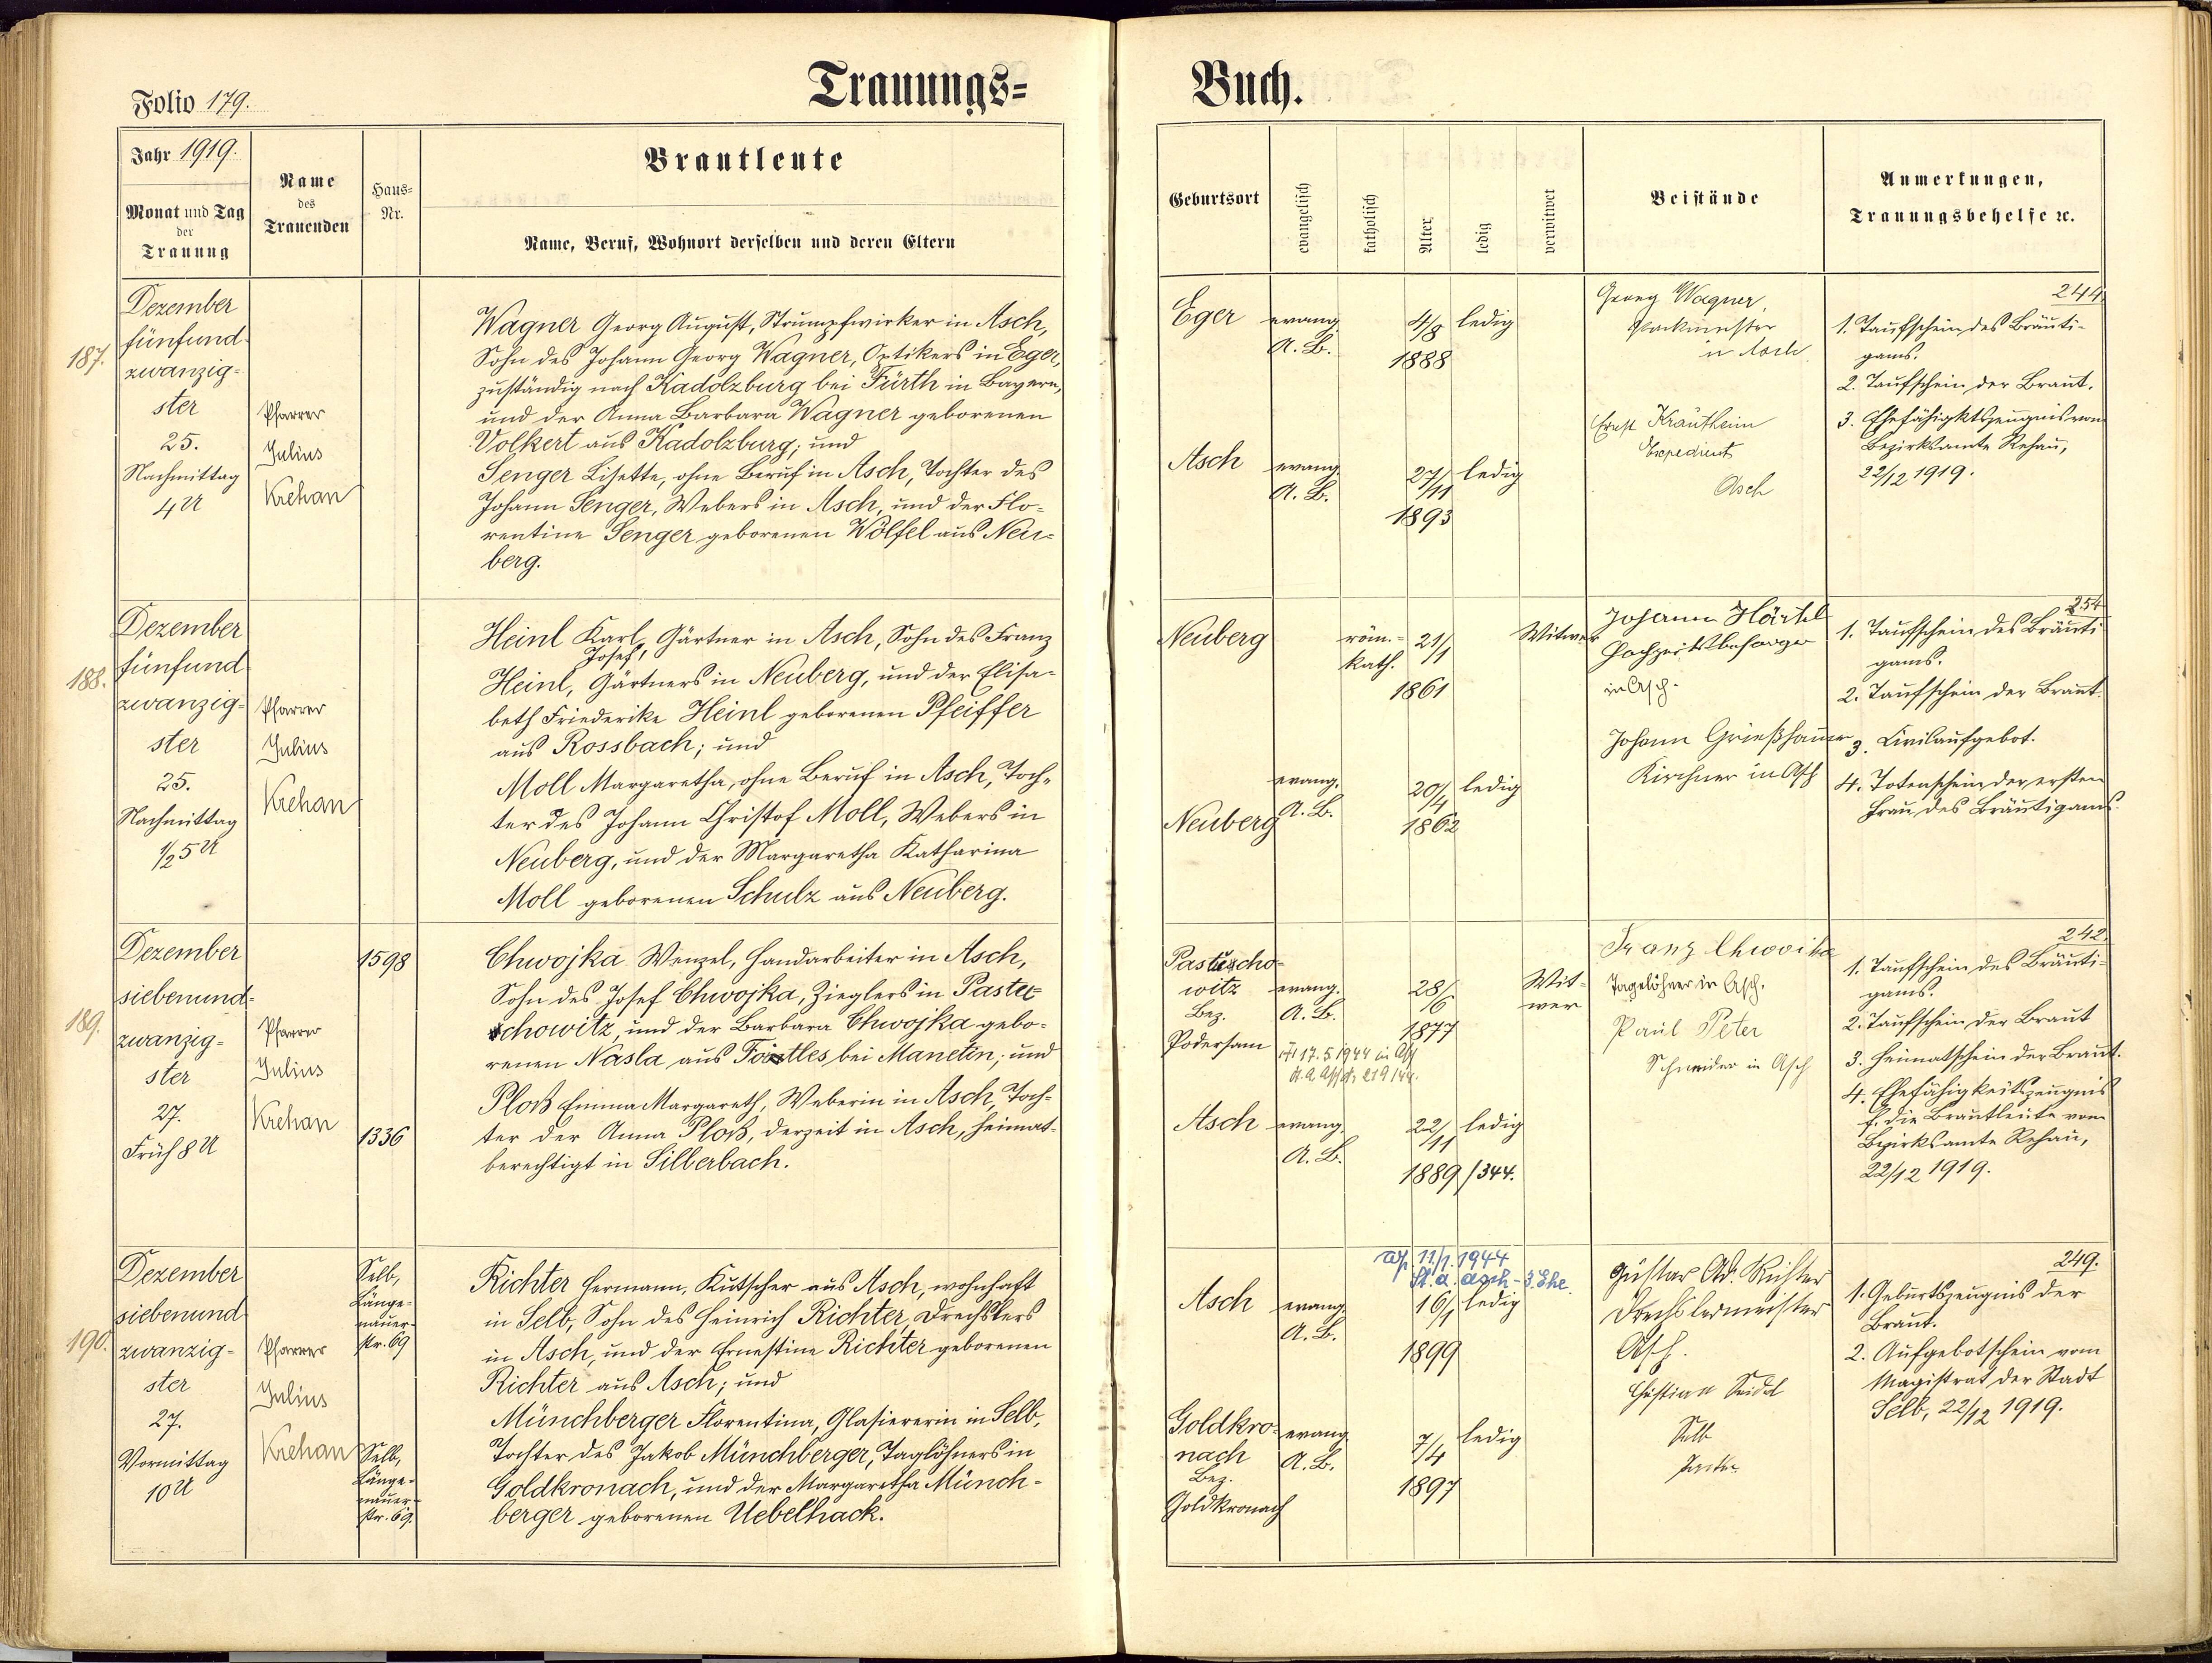 Trauungs=
Buch.
Folio 179.
Jahr 1919.
Monat und Tag
der
Trauung
Name
des
Trauenden
Haus=
Nr.
Brautleute
Name, Beruf, Wohnort derselben und deren Eltern
Geburtsort
evangelisch
katholisch
Alter
ledig
verwitwet
Beistände
Anmerkungen,
Trauungsbehelfe ec.
187.
Dezember
fünfund-
zwanzig-
ster
25.
Nachmittag
4 U
Pfarrer
Julius
Krehan
Wagner Georg August, Strumpfwirker in Asch,
Sohn des Johann Georg Wagner, Optikers in Eger,
zuständig nach Kadolzburg bei Fürth in Bayern,
und der Anna Barbara Wagner geborenen
Volkert aus Kadolzburg; und
Senger Lisette, ohne Beruf in Asch, Tochter des
Johann Senger, Webers in Asch, und der Flo-
rentine Senger geborenen Wölfel aus Neu-
berg.
Eger
evang.
A. B.
4/8
1888
ledig
Asch
evang.
A. B.
27/11
1893
ledig
Georg Wagner,
in Asch
Ernst Kräutheim
Expedient
Asch
244
1. Taufschein des Bräuti-
gams.
2. Taufschein der Braut.
3. Ehefähigktszeugnis vom
Bezirksamte Rehau,
22/12 1919.
188.
Dezember
fünfund
zwanzig-
ster
25.
Nachmittag
1/2 5 U
Pfarrer
Julius
Krehan
Heinl Karl, Gärtner in Asch, Sohn des Franz
Josef,
Heinl, Gärtners in Neuberg, und der Elisa-
beth Friederike Heinl geborenen Pfeiffer
aus Rossbach; und
Moll Margaretha, ohne Beruf in Asch, Toch-
ter des Johann Christof Moll, Webers in
Neuberg, und der Margaretha Katharina
Moll geborenen Schulz aus Neuberg.
Neuberg
röm.-
kath.
21/1
1861
Witwer
Neuberg
evang.
A. B.
20/4
1862
ledig
Johann Härtel
Hochzeitsbesorger
in Asch.
Johann Grießhammer
Kirchner in Asch
254
1. Taufschein des Bräuti
gams.
2. Taufschein der Braut.
3. Civilaufgebot.
4. Totenschein der ersten
Frau des Bräutigams.
189.
Dezember
siebenund-
zwanzig-
ster
27.
Früh 8 U
Pfarrer
Julius
Krehan
1598
1336
Chwojka Wenzel, Handarbeiter in Asch,
Sohn des Josef Chwojka, Zieglers in Pastu-
chowitz, und der Barbara Chwojka gebo-
renen Nasla aus bei Manetin; und
Ploß Emma Margareth, Weberin in Asch, Toch-
ter der Anna Ploß, derzeit in Asch, heimat-
berechtigt in Silberbach.
Pastucho-
witz
Bez.
Podersam
evang.
A. B.
28/6
1877
Wit-
wer
17.5.1944 in Asch
219/44.
Asch
evang.
A. B.
22/11
1889/344.
ledig
Franz Chwoika
Tagelöhner in Asch.
Paul Peter
Schneider in Asch
242.
1. Taufschein des Bräuti-
gams.
2. Taufschein der Braut
3. Heimatschein der Braut.
4. Ehefähigkeitszeugnis
f. die Brautleute vom
Bezirksamte Rehau,
22/12 1919.
190.
Dezember
siebenund
zwanzig-
ster
27.
Vormittag
10 U
Pfarrer
Julius
Krehan
Selb,
Länge-
nauer-
str. 69
Selb,
Länge-
nauer-
str. 69.
Richter Hermann, Kutscher aus Asch, wohnhaft
in Selb, Sohn des Heinrich Richter, Drechslers
in Asch, und der Ernestine Richter geborenen
Richter aus Asch; und
Münchberger Florentina, Glasiererin in Selb,
Tochter des Jakob Münchberger, Taglöhners in
Goldkronach, und der Margaretha Münch-
berger geborenen Uebelhack.
11/1. 1944
St. a. Asch - 3. Ehe.
Asch
evang.
A. B.
16/1
1899
ledig
Goldkro-
nach
Bez.
Goldkronach
evang.
A. B.
7/4
1897
ledig
Gustav Ad. Richter
Drechslermeister
Asch.
Christian Seidel
Selb
249.
1. Geburtszeugnis der
Braut.
2. Aufgebotschein vom
Magistrat der Stadt
Selb, 22/12 1919.